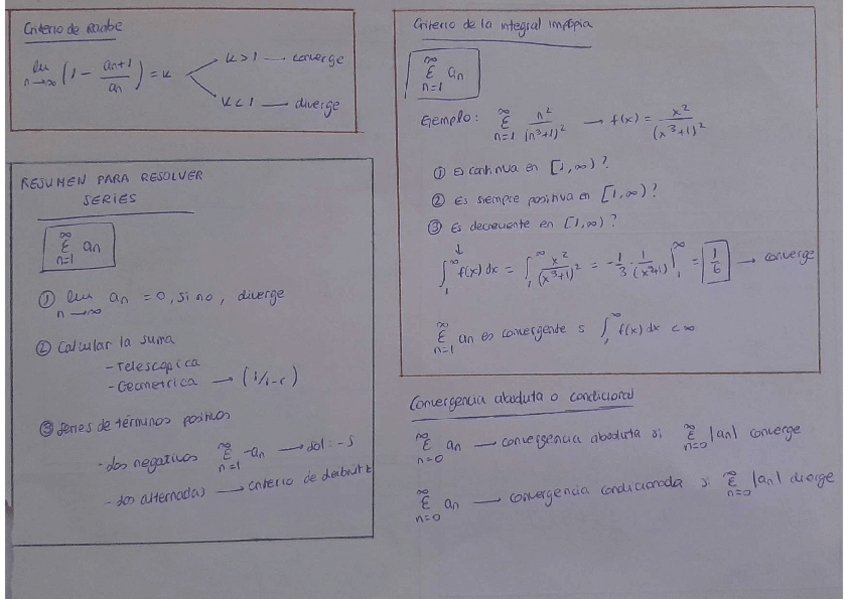 Criterio de Raabe
lim n→∞ (1 - an+1/an) = k
k>1 — converge
k<1 — diverge
RESUMEN PARA RESOLVER
SERIES
∞ Σ n=1 an
① lim n→∞ an = 0, si no, diverge
② Calcular la suma
- Telescópica
- Geométrica → (1/1-r)
③ Series de términos positivos
- dos negativos ∞ Σ n=1 -an → sol: -S
- dos alternadas → criterio de
Criterio de la integral impropia
∞ Σ n=1 an
Ejemplo: ∞ Σ n=1 n²/(n³+1)² → f(x) = x²/(x³+1)²
① Es continua en [1,∞)?
② Es siempre positiva en [1,∞)?
③ Es decreciente en [1,∞)?
↓
∫₁^∞ f(x) dx = ∫₁^∞ x²/(x³+1)² = -1/3 · 1/(x³+1) |₁^∞ = 1/6 → converge
∞ Σ n=1 an es convergente s ∫₁^∞ f(x) dx < ∞
Convergencia absoluta o condicional
∞ Σ n=0 an → convergencia absoluta si ∞ Σ n=0 |an| converge
∞ Σ n=0 an → convergencia condicionada si ∞ Σ n=0 |an| diverge